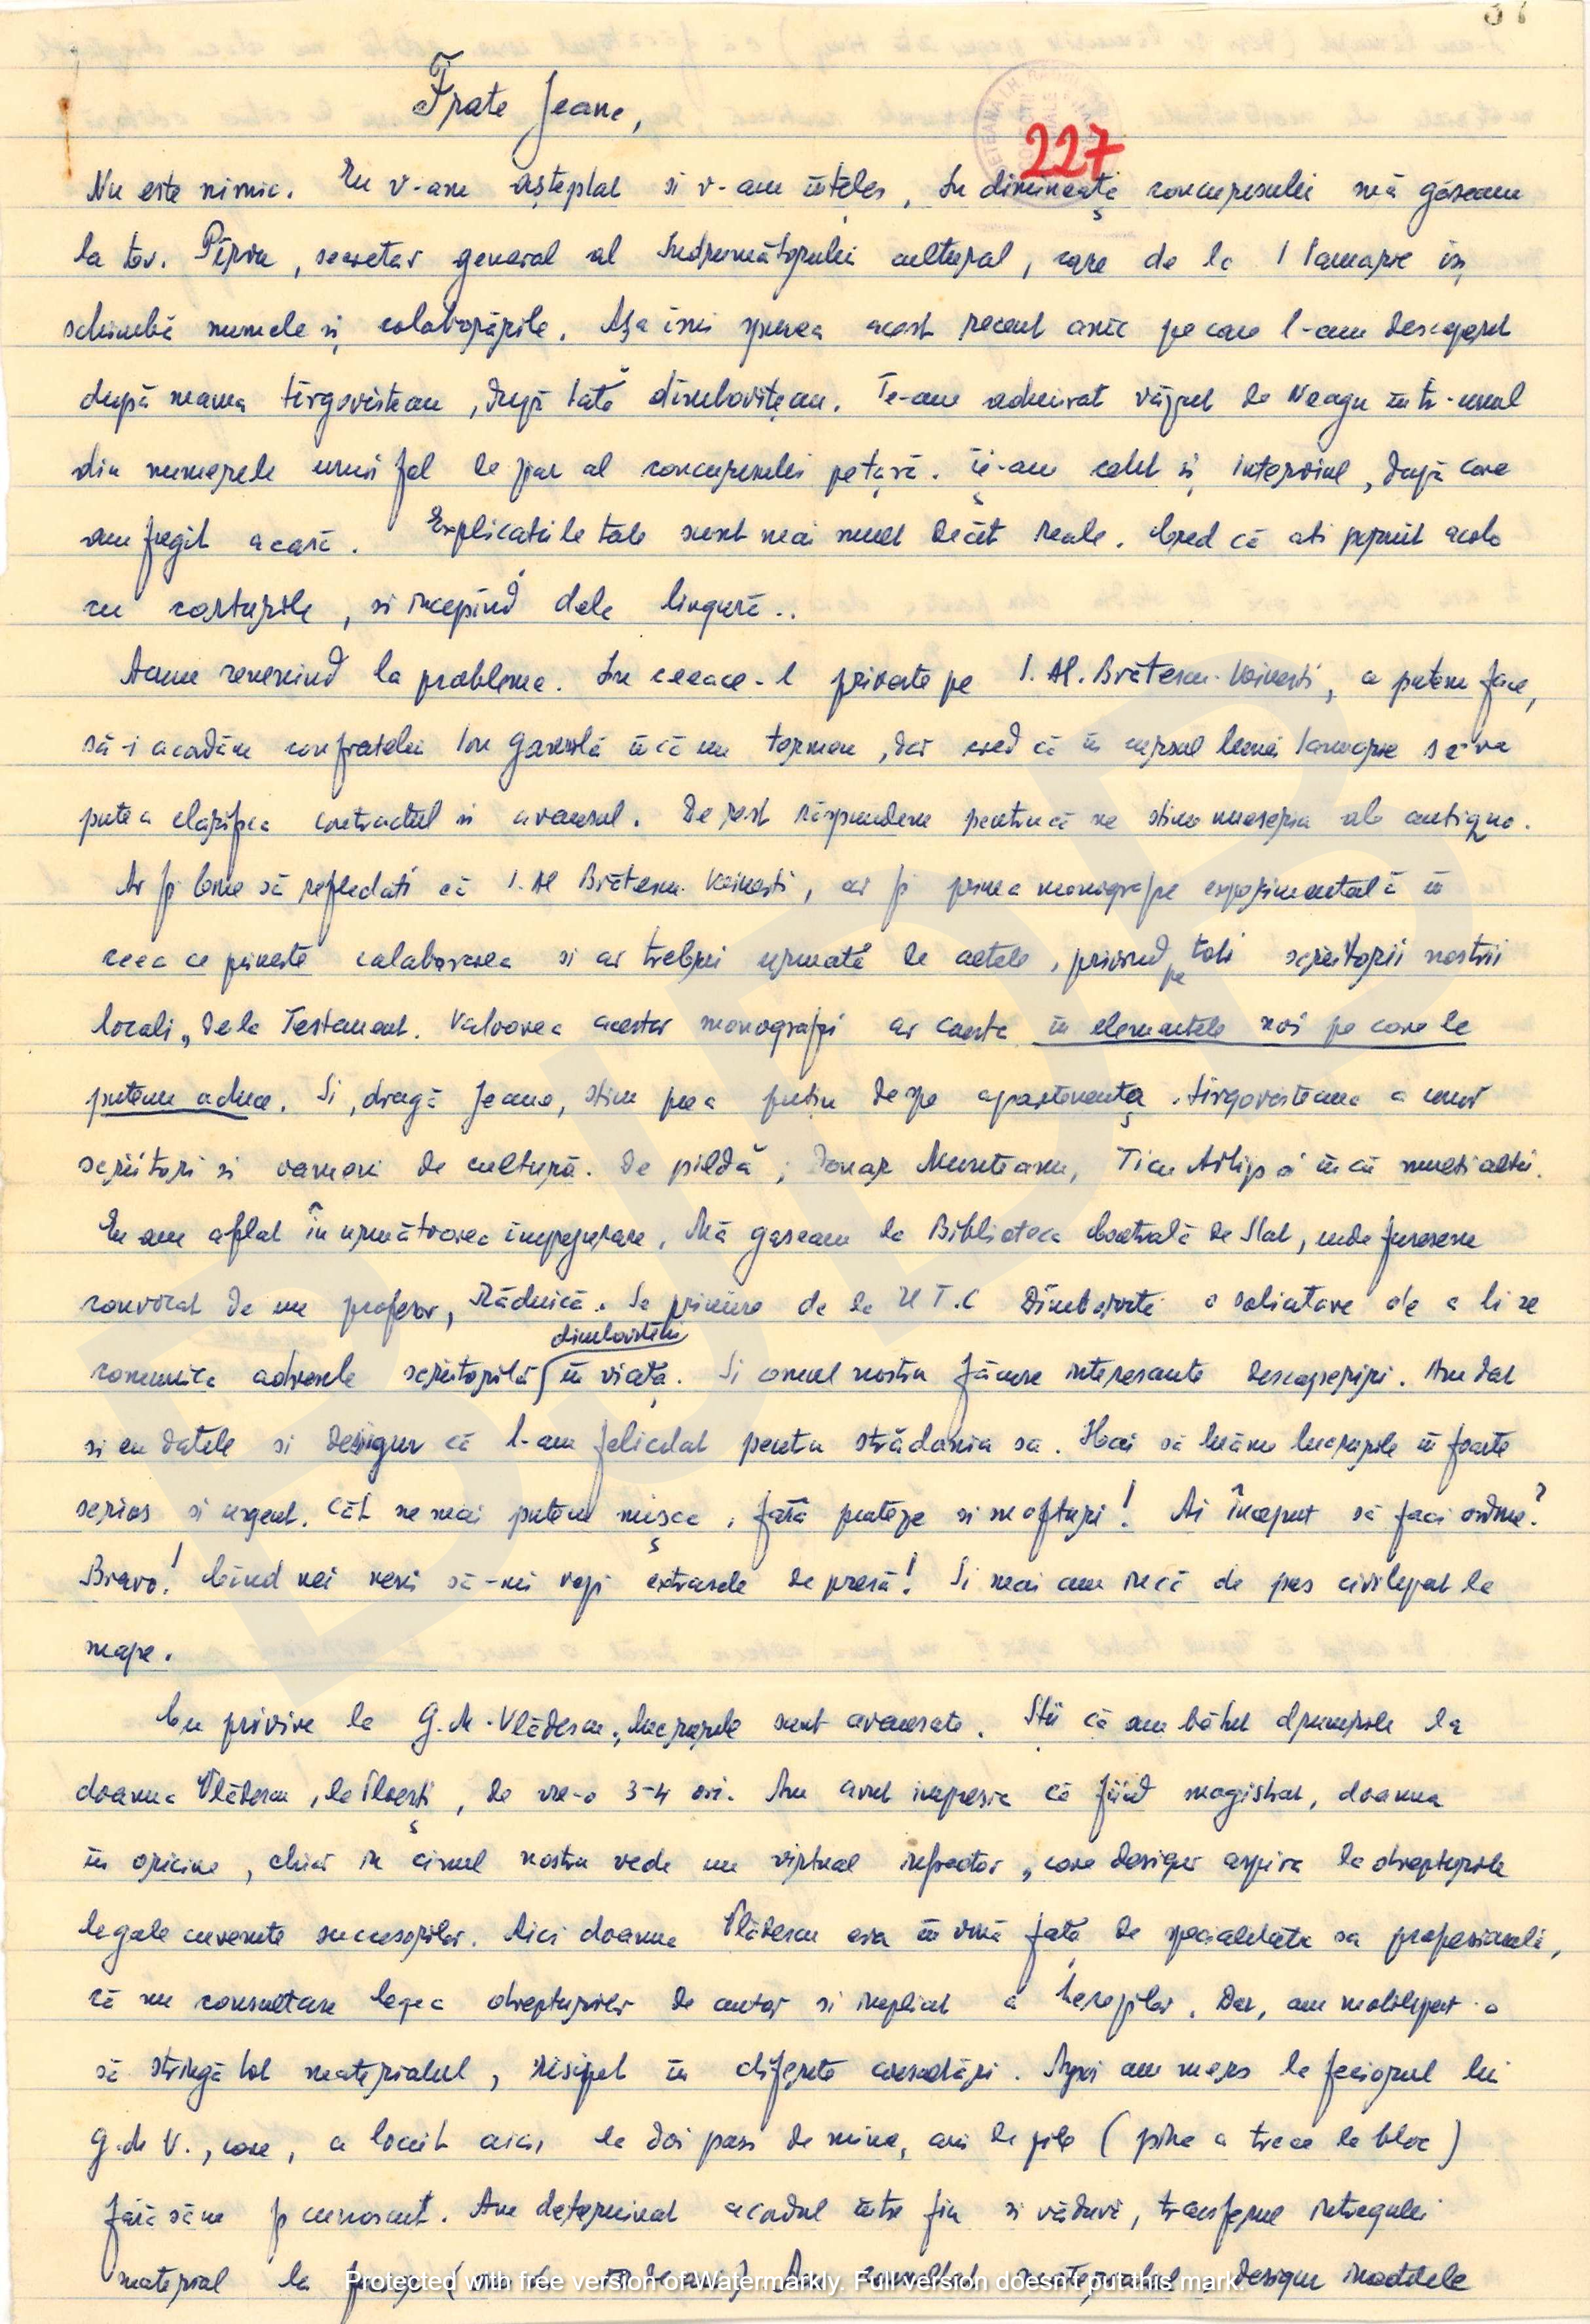 227
Frate Jeane,
Nu este nimic. Eu v-am așteptat si v-am înteles, In dimineața concursului mă găseam
la tov. Pîrvu, secretar general al Indrumătorului cultural, care de la 1 Ianuarie își
schimbă numele și colaborările. Așa îmi spunea acest recent amic pe care l-am descoperit
după mama tîrgovistean, după tată dîmbovițean. Te-am admirat văzut de Neagu într-unul
din numerele unui fel de ziar al concursului pe țară. Ți-am citit și interviul, după care
am fugit acasă. Explicatiile tale sunt mai mult decît reale. Cred că ati pornit acolo
cu corturile, si incepînd dela lingură..
Acum revenind la probleme. In ceeace-l priveste pe I. Al. Brătescu-Voinesti, a putem face,
să-i acordăm confratelui Ion Gavrilă încă un termen, dar cred că în cursul lunii Ianuarie se va
putea clarifica contractul si avansul. De rest răspundem pentrucă ne stim meseria ab antiquo.
Ar fi bine să reflectati că I. Al Brătescu-Voinesti, ar fi prima monografie experimentală în
ceea ce priveste colaborarea si ar trebui urmată de celele, privind pe toti scriitorii nostrii
locali, dela Testament. Valoarea acestor monografii ar consta în elementele noi pe care le
putem aduce. Si, dragă Jeane, stim prea putin despre apartenența tîrgovisteana a unor
scriitori si oameni de cultură. De pildă, Donar Munteanu, Ticu Arhip si încă multi altii.
Eu am aflat în următoarea împrejurare. Mă gaseam la Biblioteca Centrală de Stat, unde fusesem
convocat de un profesor, Rădnică. Se primise de la U T.C Dîmbovita o solicitare de a li se
comunica adresele scriitorilor dîmboviteni în viața. Si omul nostru făcuse interesante descoperiri. Am dat
si eu datele si desigur că l-am felicitat pentru strădania sa. Hai să luăm lucrurile în foarte
serios si urgent. Cât ne mai putem mișca, fără proteze si mofturi! Ai început să faci ordine?
Bravo! Cînd vei veni să-mi vezi extrasele de presă! Si mai am încă de pus civilizat la
mape.
Cu privire la G. M. Vlădescu, lucrurile sunt avansate. Stii că am bătut drumurile la
doamna Vlădescu, la Ploești, de vre-o 3-4 ori. Am avut impresia că fiind magistrat, doamna
în oricine, chiar în cinul nostru vede un virtual infractor, care desigur aspira la drepturile
legale cuvenite succesorilor. Aici doamna Vlădescu era în vină față de specialitatea sa profesională,
că nu consultase legea drepturilor de autor si implicit a herezilor. Dar, am mobilizat-o
să strîngă tot materialul, risipit în diferite ascunzări. Apoi am mers la feciorul lui
G. M. V., care, a locuit aici, la doi pasi de mine, ani de zile ( pîna a trece la bloc )
fără să ne fi cunoscut. Am determinat acordul între fiu si văduvă, transferul întregului
material la desigur
Protected with free version of Watermarkly. Full version doesn't put this mark.